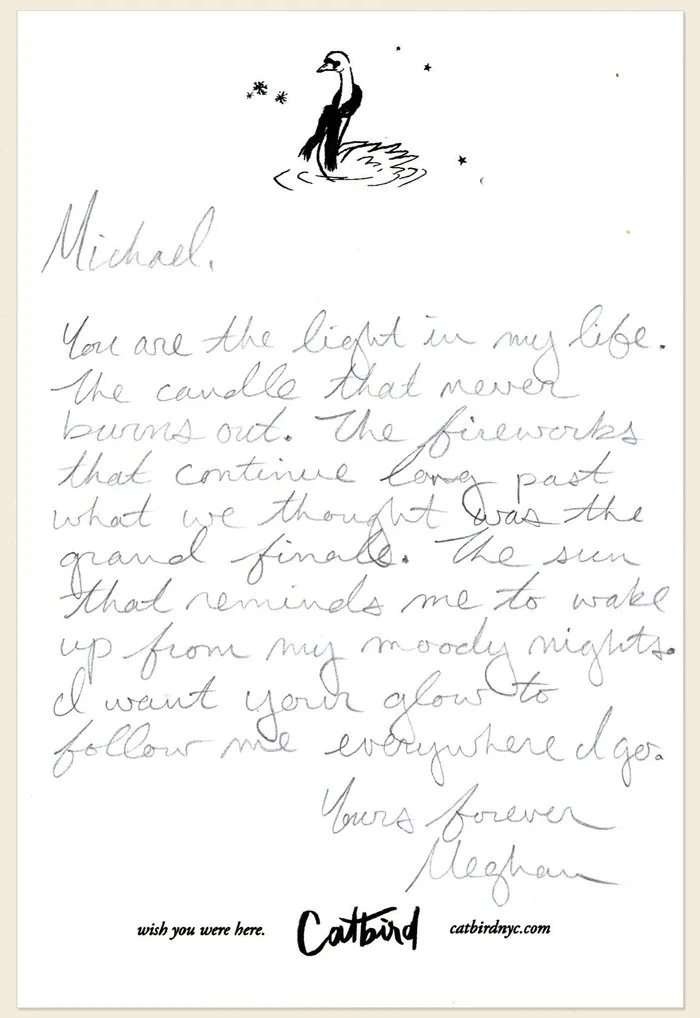 Michael,
You are the light in my life.
The candle that never
burns out. The fireworks
that continue long past
what we thought was the
grand finale. The sun
that reminds me to wake
up from my moody nights.
I want your glow to
follow me everywhere I go.
Yours forever
Meghan
wish you were here. Catbird catbirdnyc.com